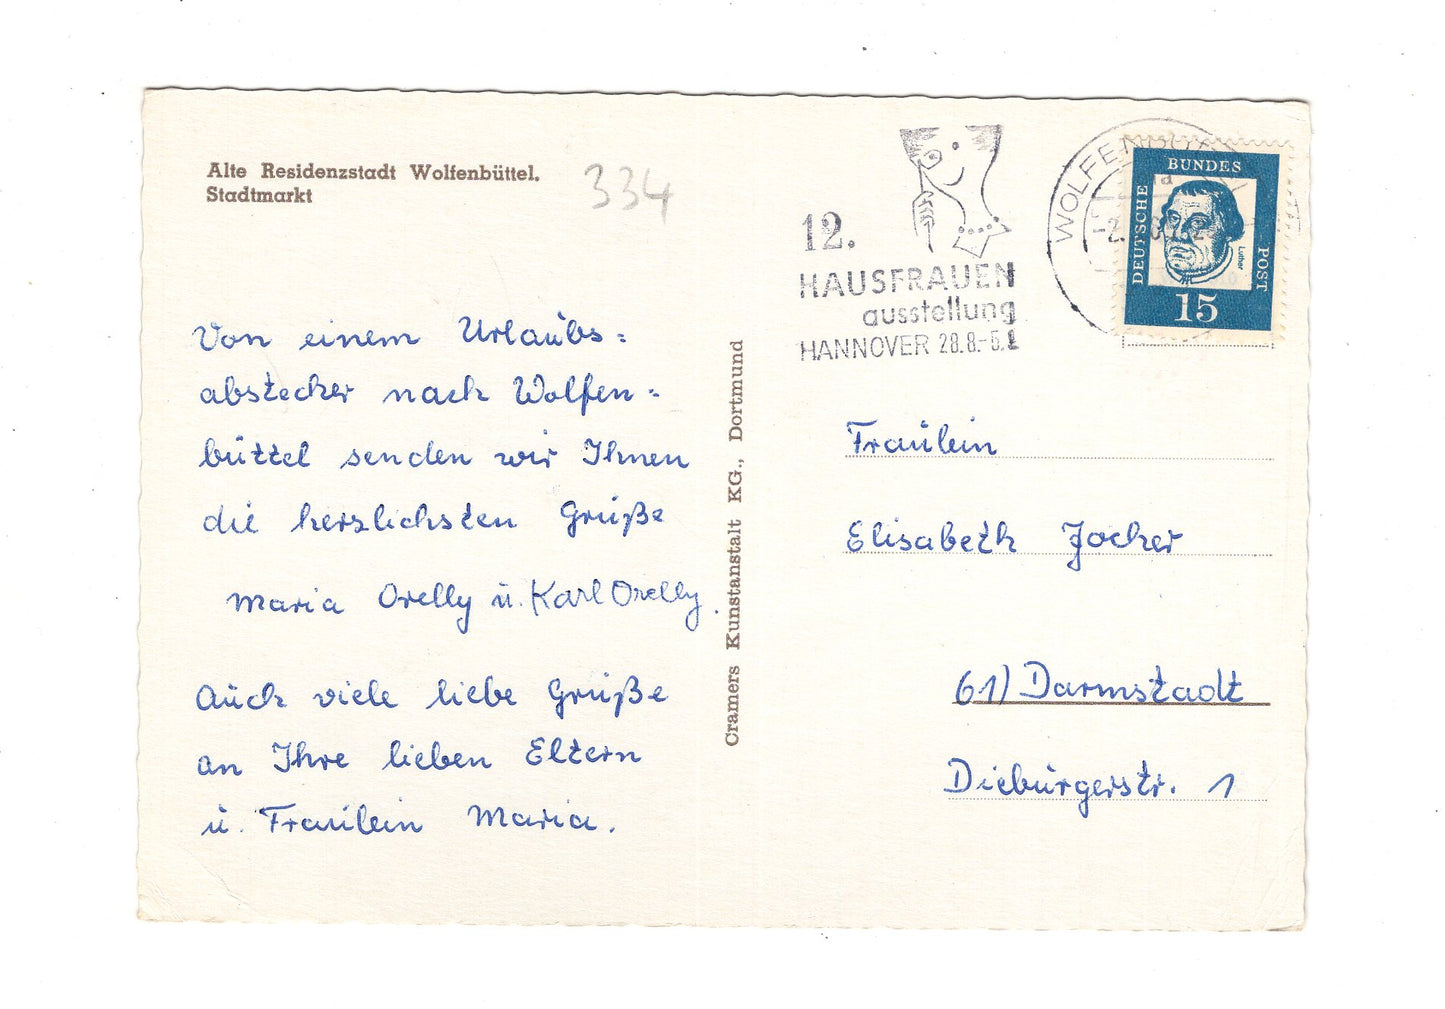 Alte Residenzstadt Wolfenbüttel.
Stadtmarkt
334
Von einem Urlaubs=
abstecher nach Wolfen=
büttel senden wir Ihnen
die herzlichsten Grüße
Maria Orelly u. Karl Orelly.
Auch viele liebe Grüße
an Ihre lieben Eltern
u. Fräulein Maria.
Cramers Kunstanstalt KG., Dortmund
12.
HAUSFRAUEN
ausstellung
HANNOVER 28.8.-5.
DEUTSCHE BUNDES POST
Luther
15
Fräulein
Elisabeth Jocher
61) Darmstadt
Dieburgerstr. 1